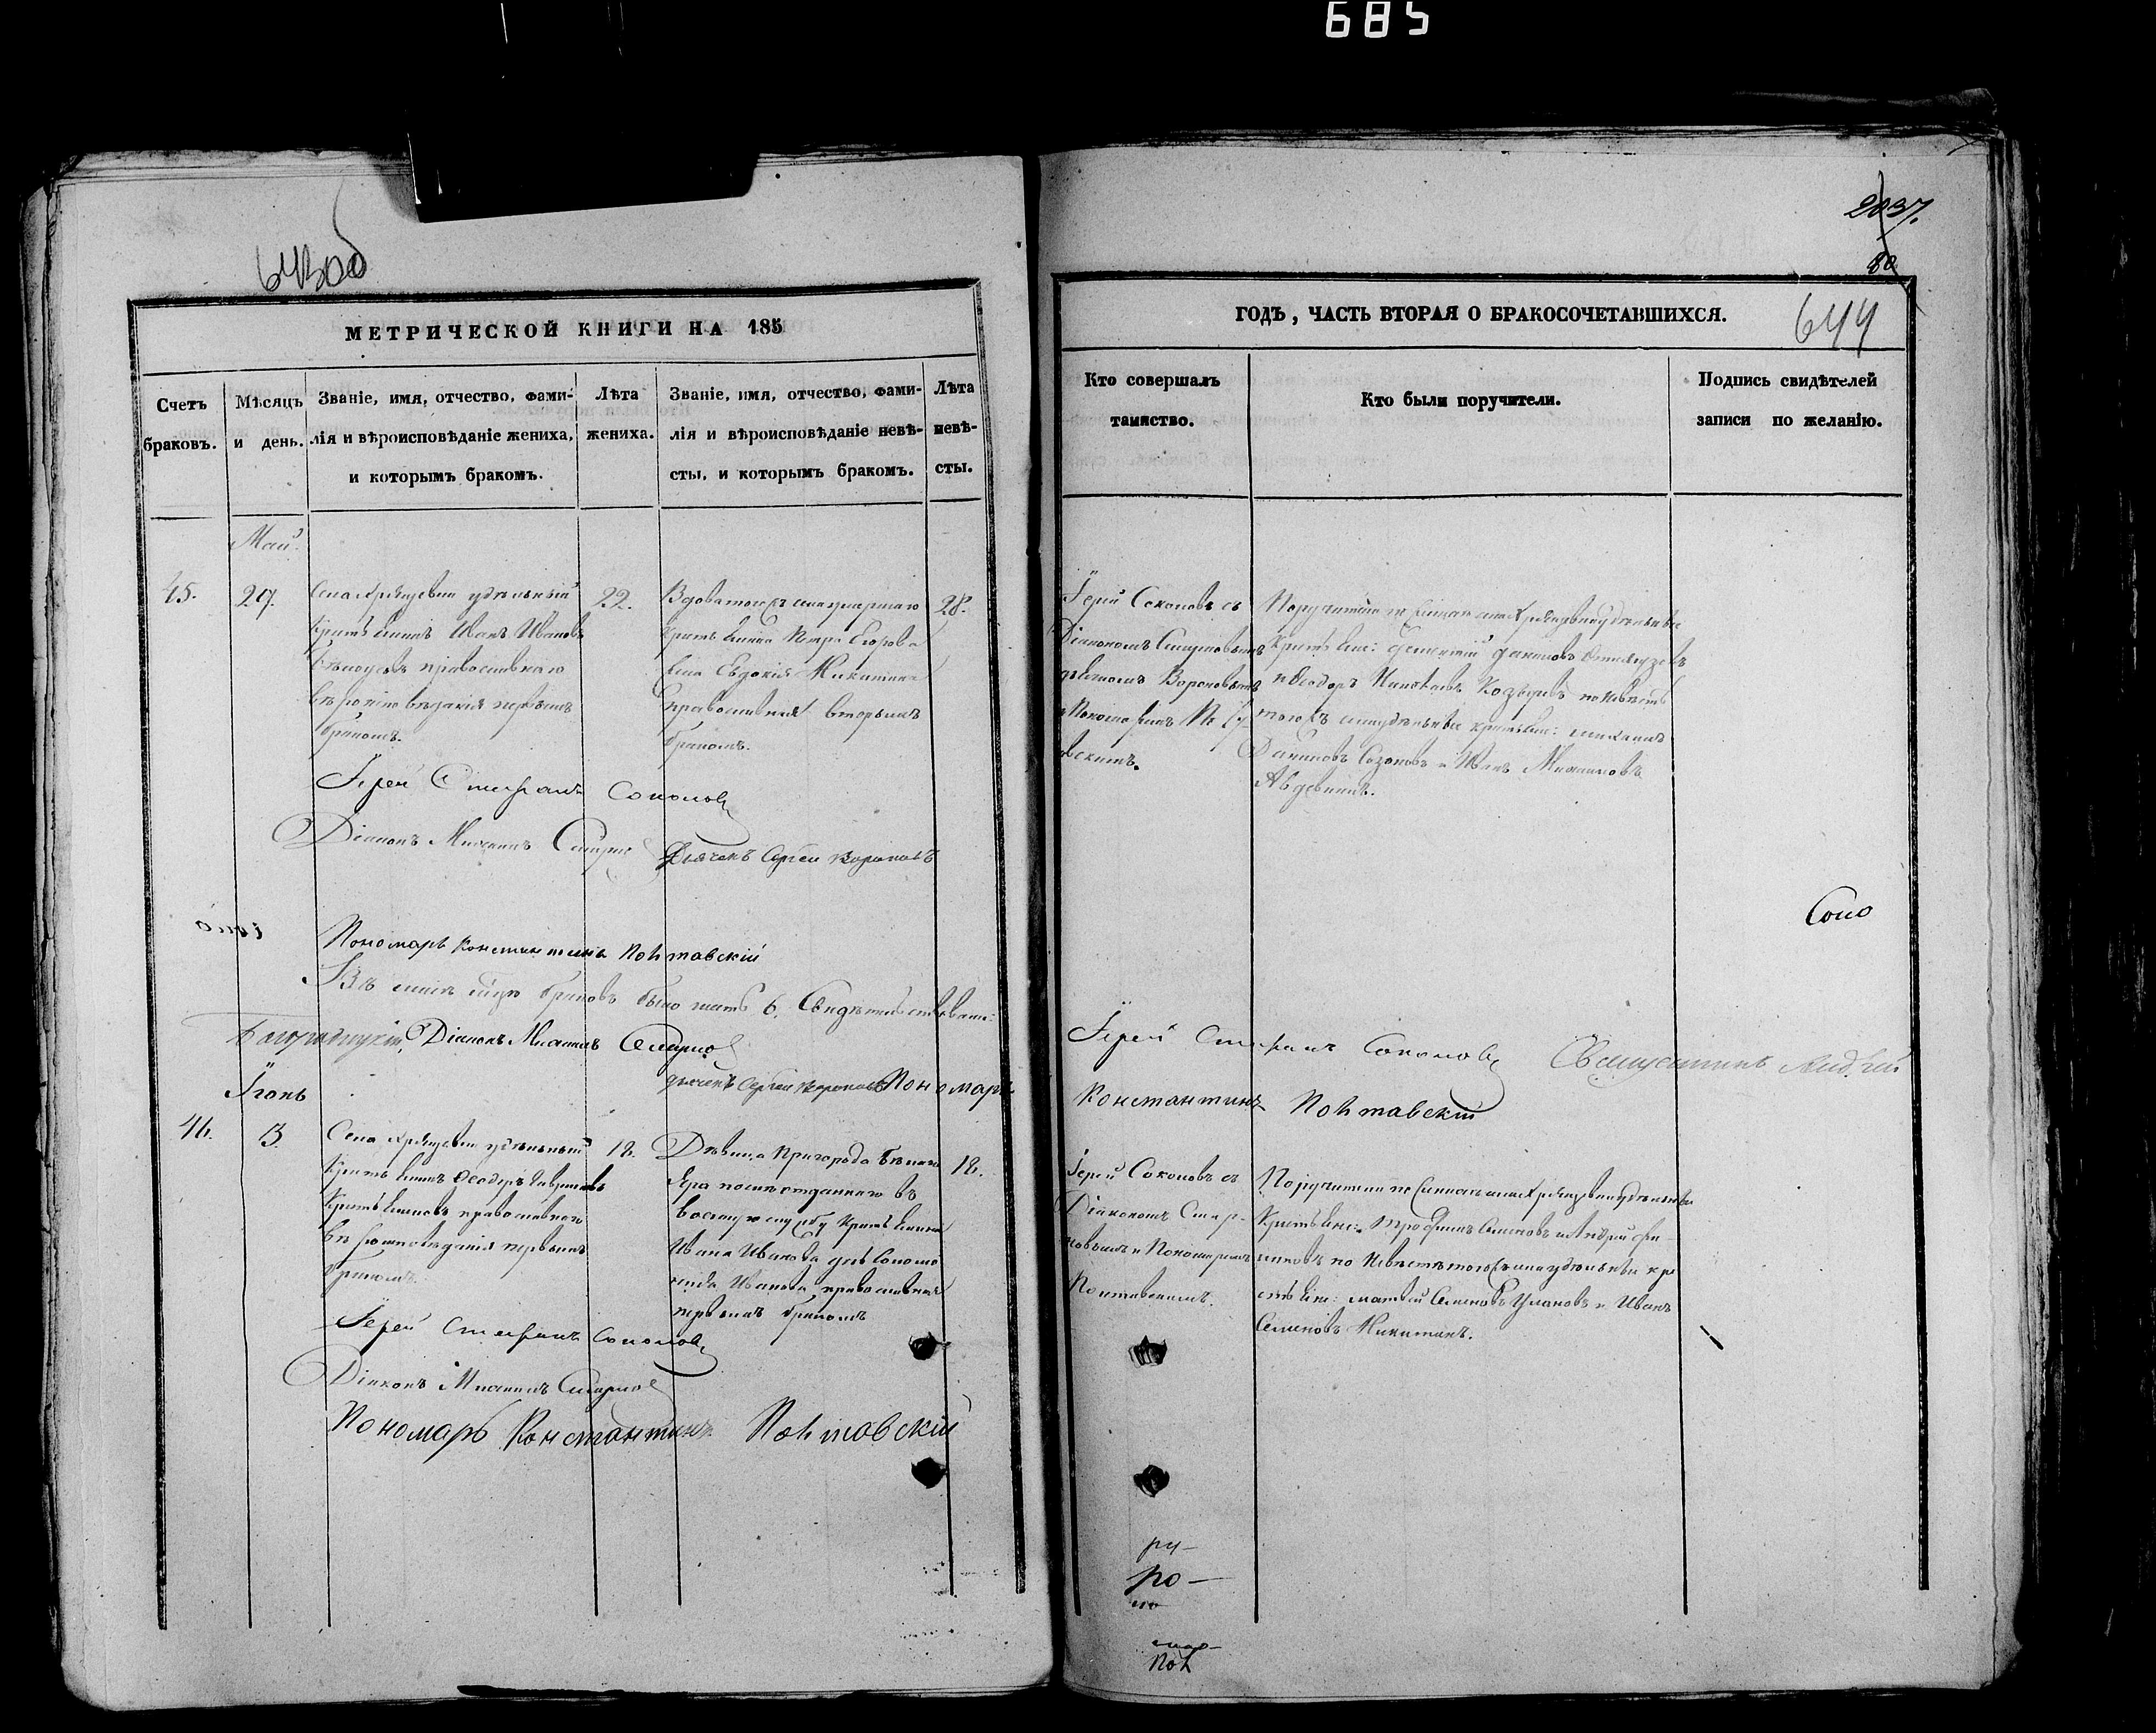 685
643 об
МЕТРИЧЕСКОЙ КНИГИ НА 185
Счетъ браковъ.
Мѣсяцъ и день.
Званіе, имя, отчество, фами-
лія и вѣроисповѣданіе жениха,
и которымъ бракомъ.
Лѣта жениха.
Званіе, имя, отчество, фами-
лія и вѣроисповѣданіе невѣ-
сты, и которымъ бракомъ.
Лѣта невѣ-
сты.
Май.
45.
29.
Села Хрящевки удѣльный
Крестьянинъ Иванъ Ивановъ
православнаго
вѣроисповѣданія первымъ
бракомъ.
22.
Вдова того жъ села умершаго
Крестьянина Петра Егорова
жена Евдокія Никитина
православная вторымъ
бракомъ.
28.
Іерей Стефанъ Соколовъ
Діаконъ Михаилъ Смирнов
Дьячекъ Сергей Вороновъ
Пономарь Константинъ Полтавскій
Въ маѣ мѣсяцѣ браковъ было шесть 6. Свидѣтельствовали:
Багородицкій, Діаконъ Михаилъ Смирнов
дьячекъ Сергей Вороновъ Пономарь
Іюнь
46.
3.
Села Хрящевки удѣльный
Крестьянинъ Ѳеодоръ Гавриловъ
православнаго
вѣроисповѣданія первымъ
бракомъ.
18.
Дѣвица Пригорода Бѣлаго
Яра послѣ отданнаго въ
военную службу Крестьянина
Ивана Иванова дочь Соломо
нида Иванова православная
первымъ бракомъ
18.
Іерей Стефанъ Соколовъ
Діаконъ Михаилъ Смирнов
Пономарь Константинъ Полтавскій
2037.
80
ГОДЪ, ЧАСТЬ ВТОРАЯ О БРАКОСОЧЕТАВШИХСЯ.
644
Кто совершалъ
таинство.
Кто были поручители.
Подпись свидѣтелей
записи по желанію.
Іерей Соколовъ съ
Діакономъ Смирновымъ
дьячкомъ Вороновымъ
и Пономаремъ Пол
авскимъ.
Поручители по женихѣ села Хрящевки удѣльные
Крестьяне: Даниловъ
и Ѳеодоръ Николаевъ Козыревъ по невѣстѣ
того жъ села удѣльные крестьяне: Михаилъ
Даниловъ Созоновъ и Иванъ Михайловъ
Авдевнинъ.
Соко
Іерей Стефанъ Соколовъ Священникъ Андрей
Константинъ Полтавскій
Іерей Соколовъ съ
Діакономъ Смир-
новымъ и Пономаремъ
Полтавскимъ.
Поручители по женихѣ села Хрящевки удѣльные
Крестьяне: Трофимъ Семеновъ и Андрей Фи-
липповъ по невѣстѣ того жъ села удѣльные кре
стьяне: Матвей Семеновъ Улановъ и Иванъ
Семеновъ Никитинъ.
ру-
по-
Пол